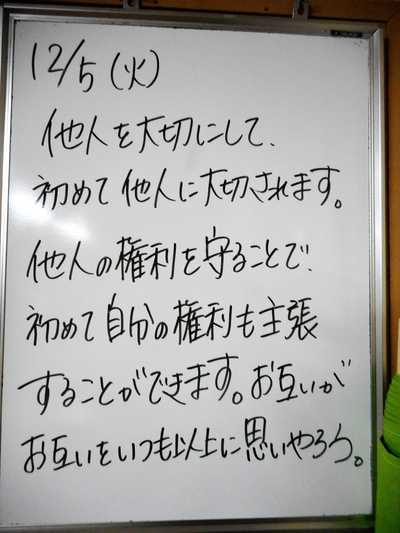 12/5(火)
他人を大切にして、
初めて他人に大切されます。
他人の権利を守ることで、
初めて自分の権利も主張
することができます。お互いが
お互いをいつも以上に思いやろう。